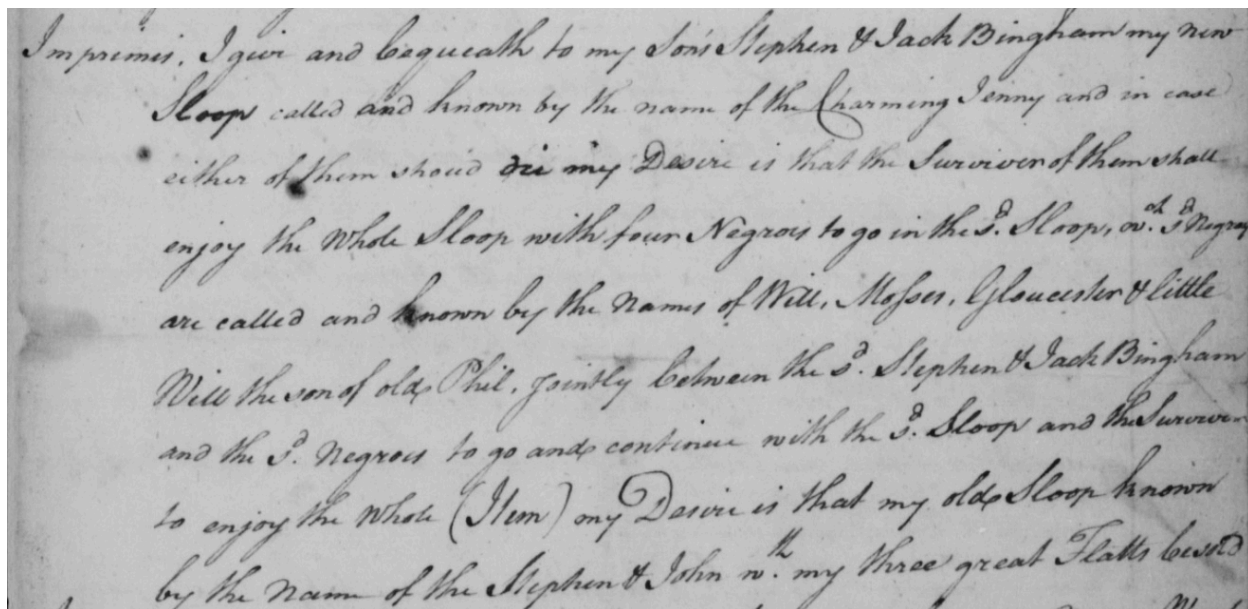 Imprimis, I give and bequeath to my Son's Stephen & Jack Bingham my new
Sloop called and known by the name of the Charming Jenny and in case
either of them shoud die my Desire is that the Surviver of them shall
enjoy the Whole Sloop with four Negroes to go in the sd. Sloop, wch. sd Negroes
are called and known by the Names of Will, Mosses, Gloucester & little
Will the son of old Phil, Jointly between the sd. Stephen & Jack Bingham
and the sd. Negroes to go and continue with the sd. Sloop and the Surviver
to enjoy the Whole (Item) my Desire is that my old Sloop known
by the Name of the Stephen & John wth. my three great Flatts